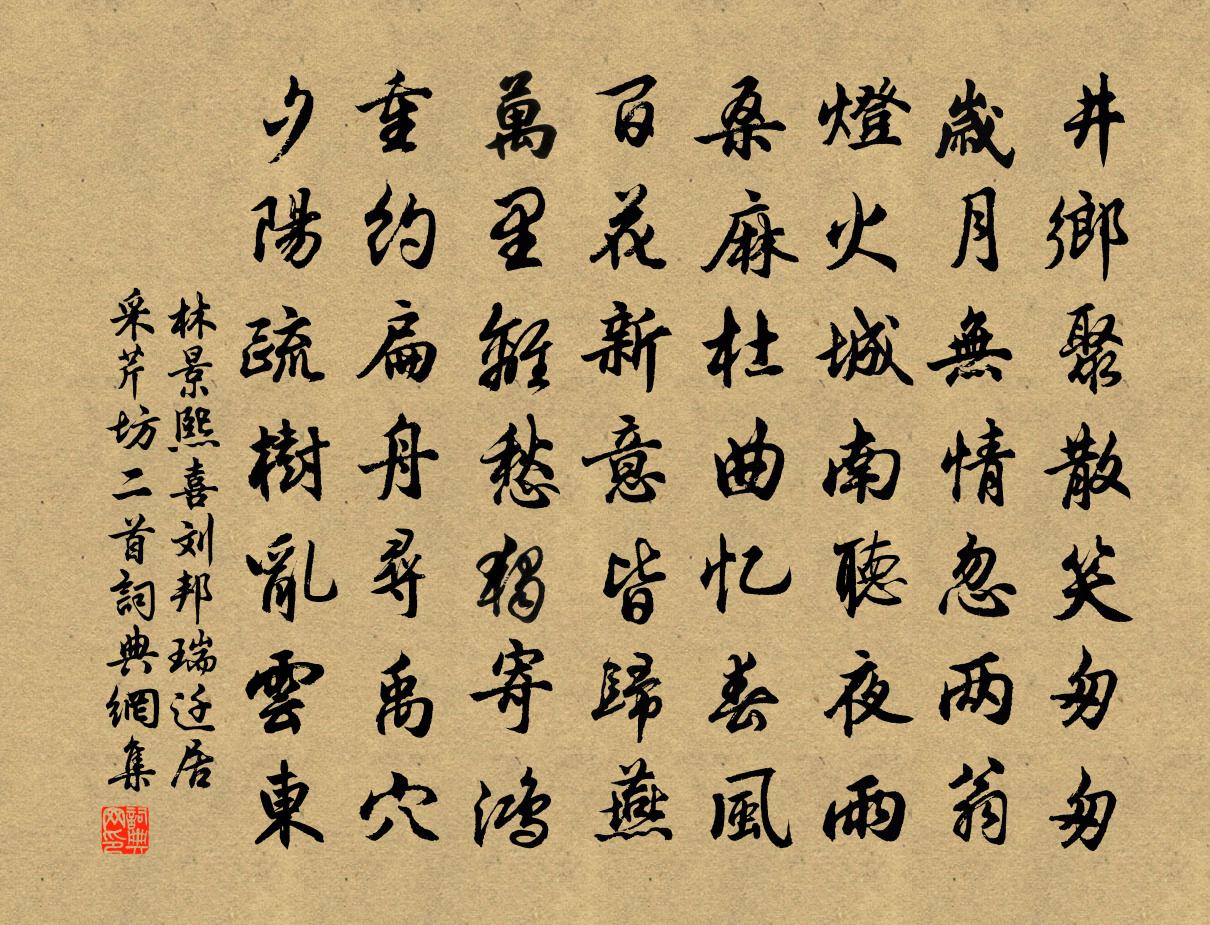 井鄉聚散笑匆匆
歲月無情忽两翁
燈火城南聽夜雨
桑麻杜曲忆春風
百花新意皆歸燕
萬里離愁獨寄鴻
重約扁舟尋禹穴
夕陽疏樹亂雲東
林景熙喜刘邦瑞迁居
采芹坊二首詞典網集
詞典网印